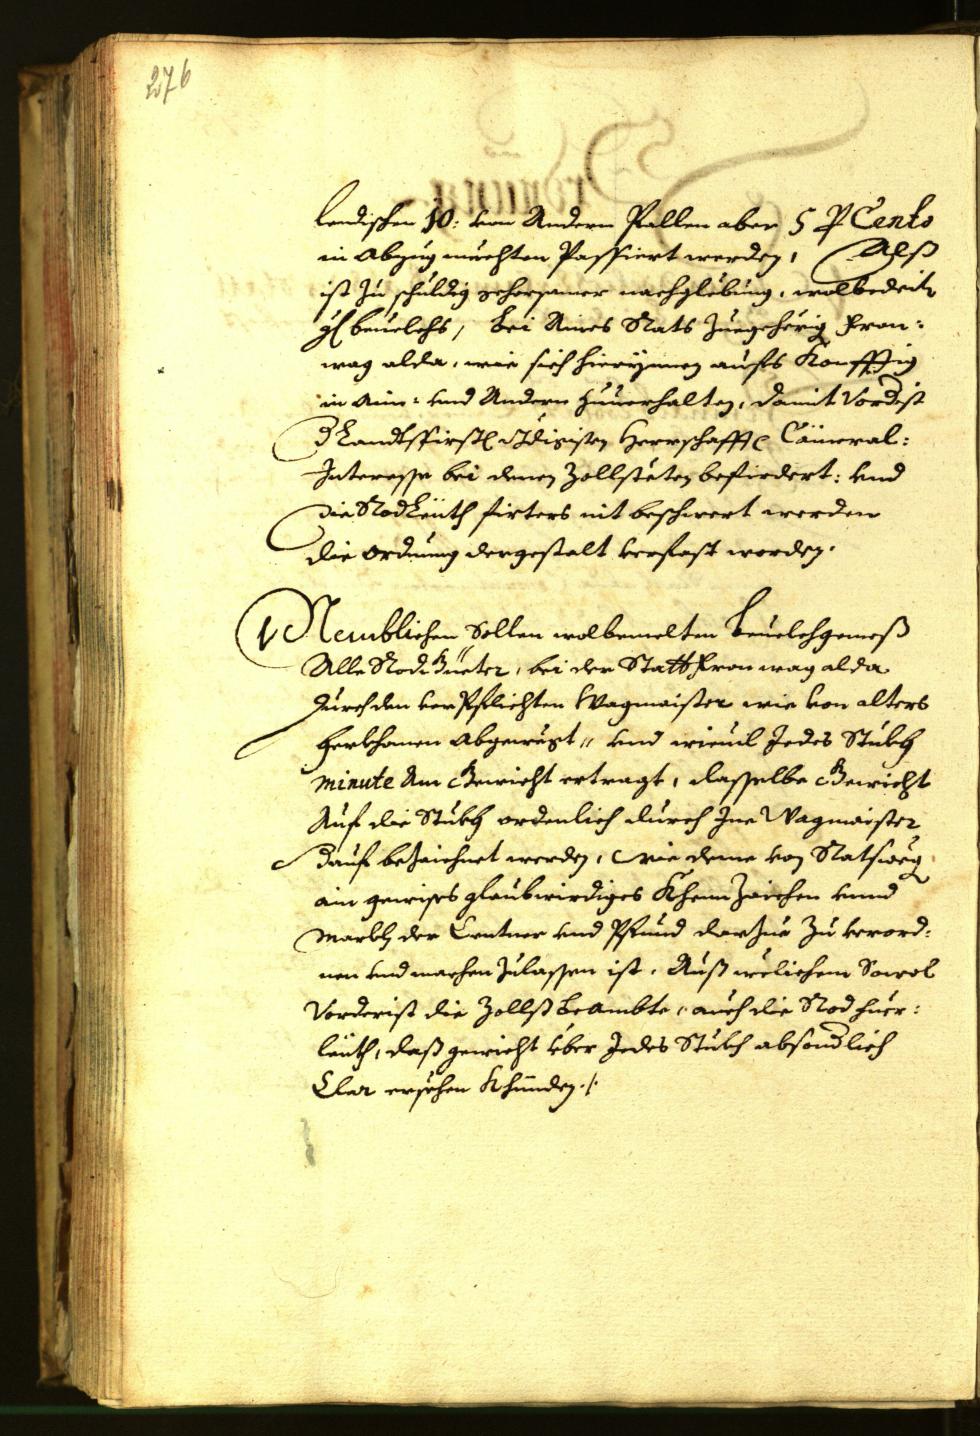 276
lendischen 10: von Andern Pallen aber 5 P Cento
in Abzug mechten Passiert werden, Alß
ist zu schuldig gehorsamer nachglebung, wolbedeits
gl beuelchs, bei Aines Stats zuegehörig Fron:
wag alda, wie sich hierynnen aufs Konfftig
in Ain: vnd Andern zuuerhalten, damit Vorderist
d Landtsfirstl Herrschafft Cameral:
Interesse bei denen Zollstäten befirdert: vnd
die Rodleüth firters nit beschwert werden
die Ordnung dergestalt verfast worden.
1 Nemblichen Sollen wolbemelten beuelchgemeß
Alle Rodt Güeter, bei der Statt Fronwag alda
durch den verPflichten Wagmaister wie von alters
herkhomen Abgewegt, vnd wieuil Jedes Stukh
minute Am Gewicht ertragt, dasselbe Gewicht
Auf die Stukh ordenlich durch Ine Wagmaister
darauf bezaichnet werden, wie deme von Statswegen
ain gewises glaubwirdiges Khennzaichen vnnd
Markh der Centner vnd Pfund darzue zu verord:
nen vnd machen zulassen ist, Auß welichem Sowol
Vorderist die Zollsbeambte, auch die Rodfuer:
leüth, daß gewicht yber Jedes Stukh absonderlich
Clar ersehen Khünden./.